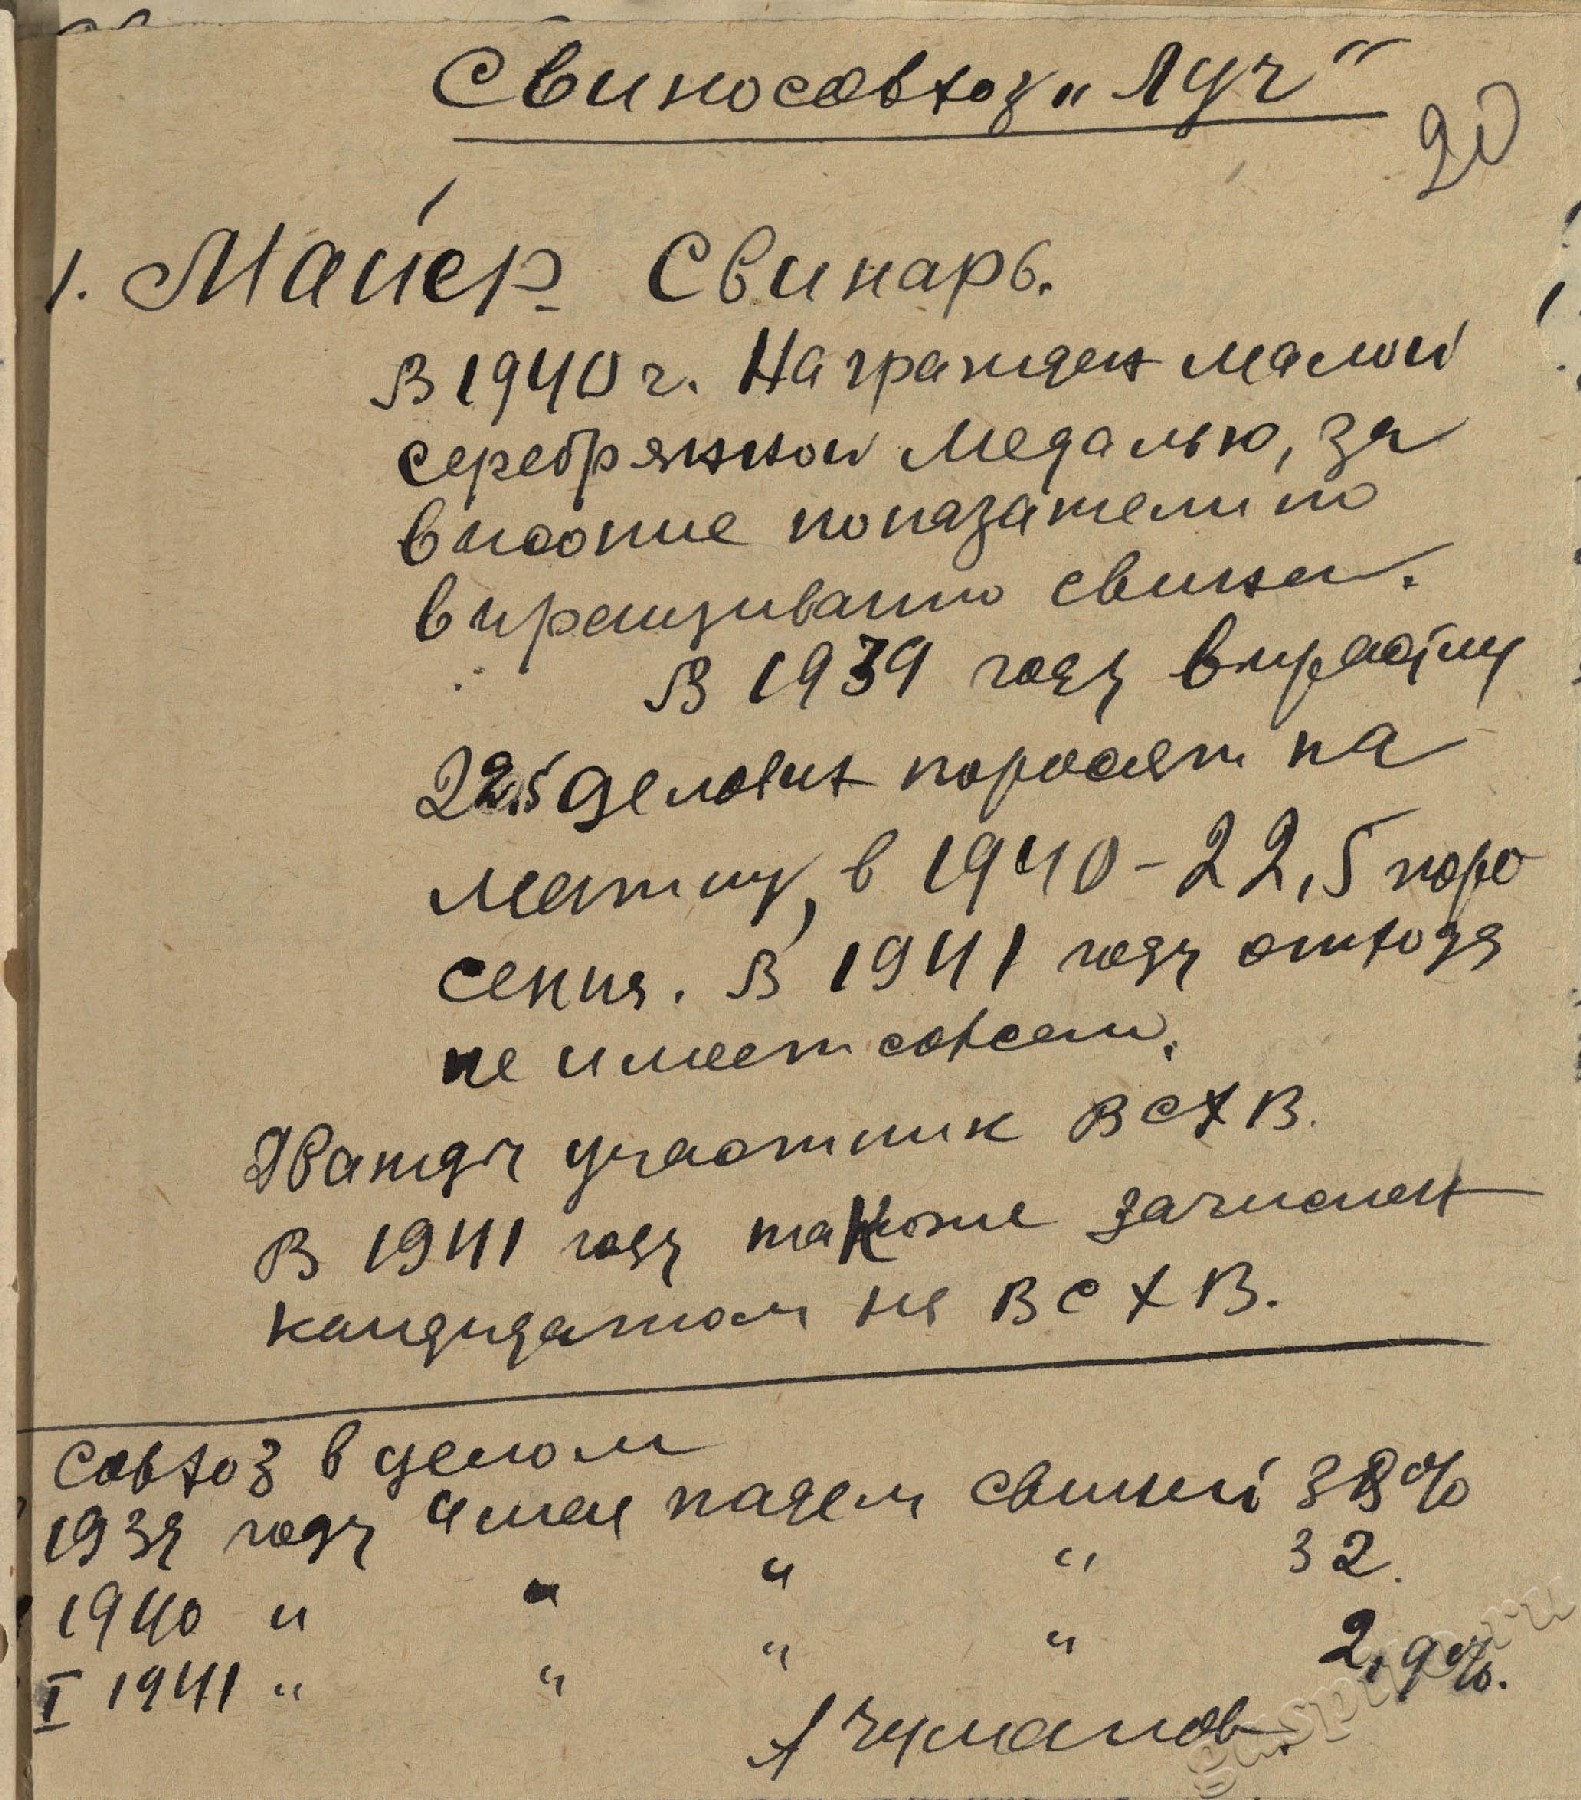 Свиносовхоз „Луч“
20
1. Майер Свинарь.
В 1940 г. Награжден малой
серебрянной медалью, за
высокие показатели по
выращиванию свиней.
В 1939 году вырастил
22,5 деловых поросят на
матку, в 1940 - 22,5 поро
сенка. В 1941 году отхода
не имеет совсем.
Дважды участник ВСХВ.
В 1941 году также зачислен
кандидатом на ВСХВ.
Совхоз в целом
1939 году имел падеж свиней 38%
1940 " " " " 32.
I 1941 " " " " 2,9%.
А Чуманов.
gaspiko.ru